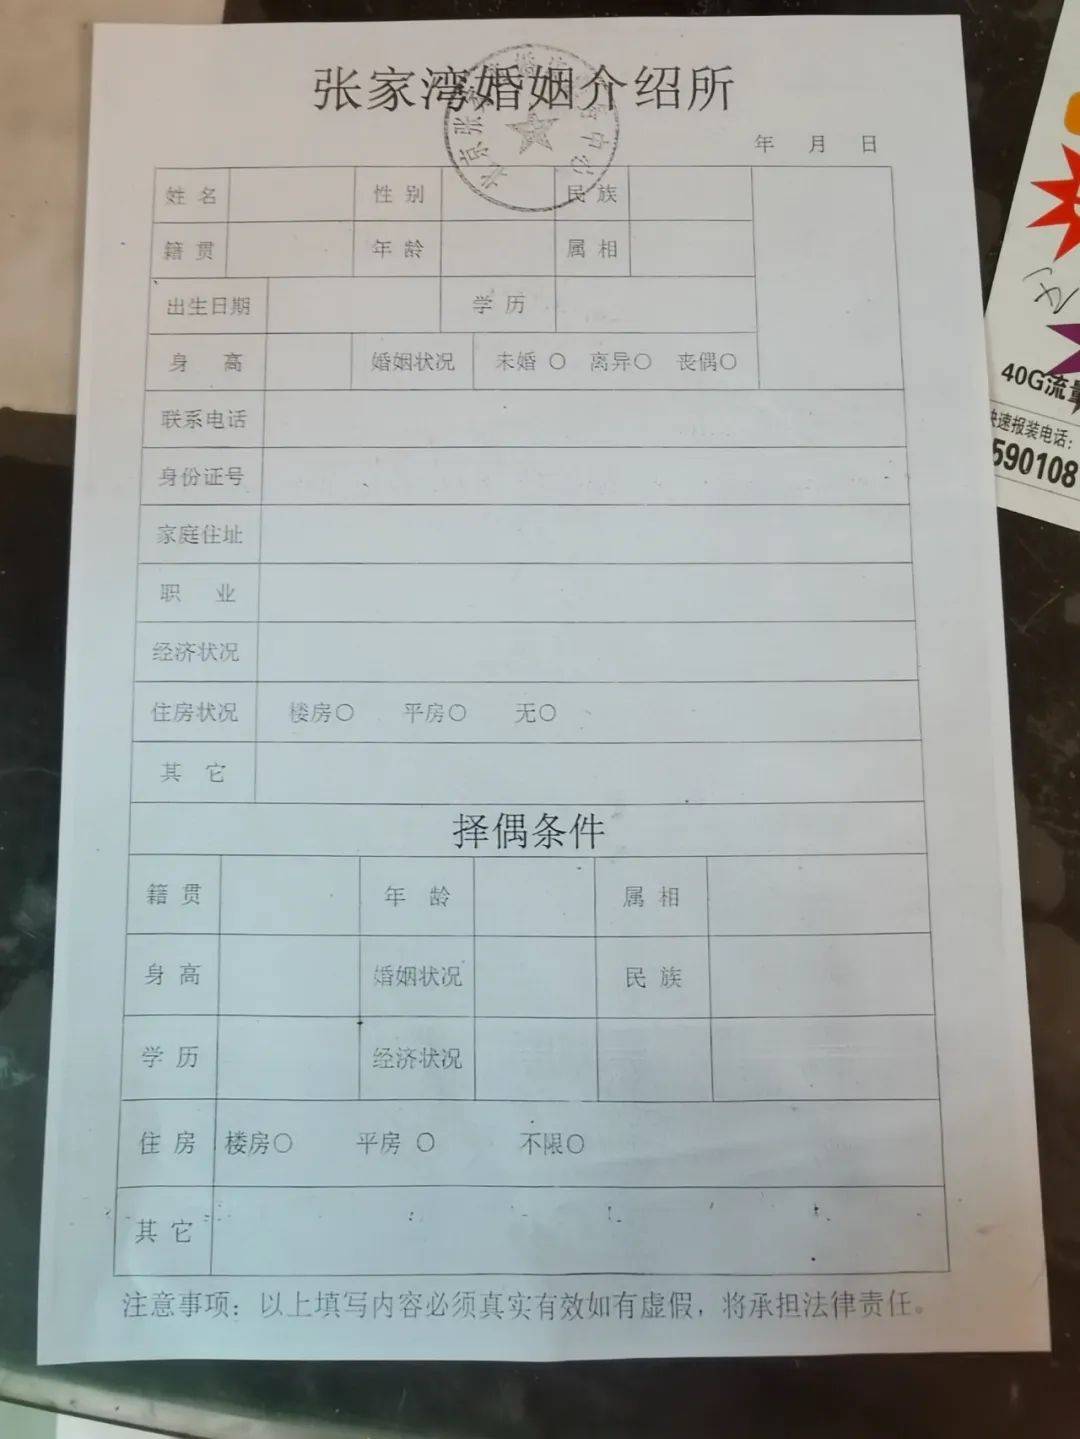 张家湾婚姻介绍所
年 月 日
姓 名 性 别 民 族
籍 贯 年 龄 属 相
出生日期 学 历
身 高 婚姻状况 未婚 ○ 离异○ 丧偶○
联系电话
身份证号
家庭住址
职 业
经济状况
住房状况 楼房○ 平房○ 无○
其 它
择偶条件
籍 贯 年 龄 属 相
身 高 婚姻状况 民 族
学 历 经济状况
住 房 楼房○ 平房 ○ 不限○
其 它
注意事项：以上填写内容必须真实有效如有虚假，将承担法律责任。
北京张
中心
40G流量
快速报装电话：
590108